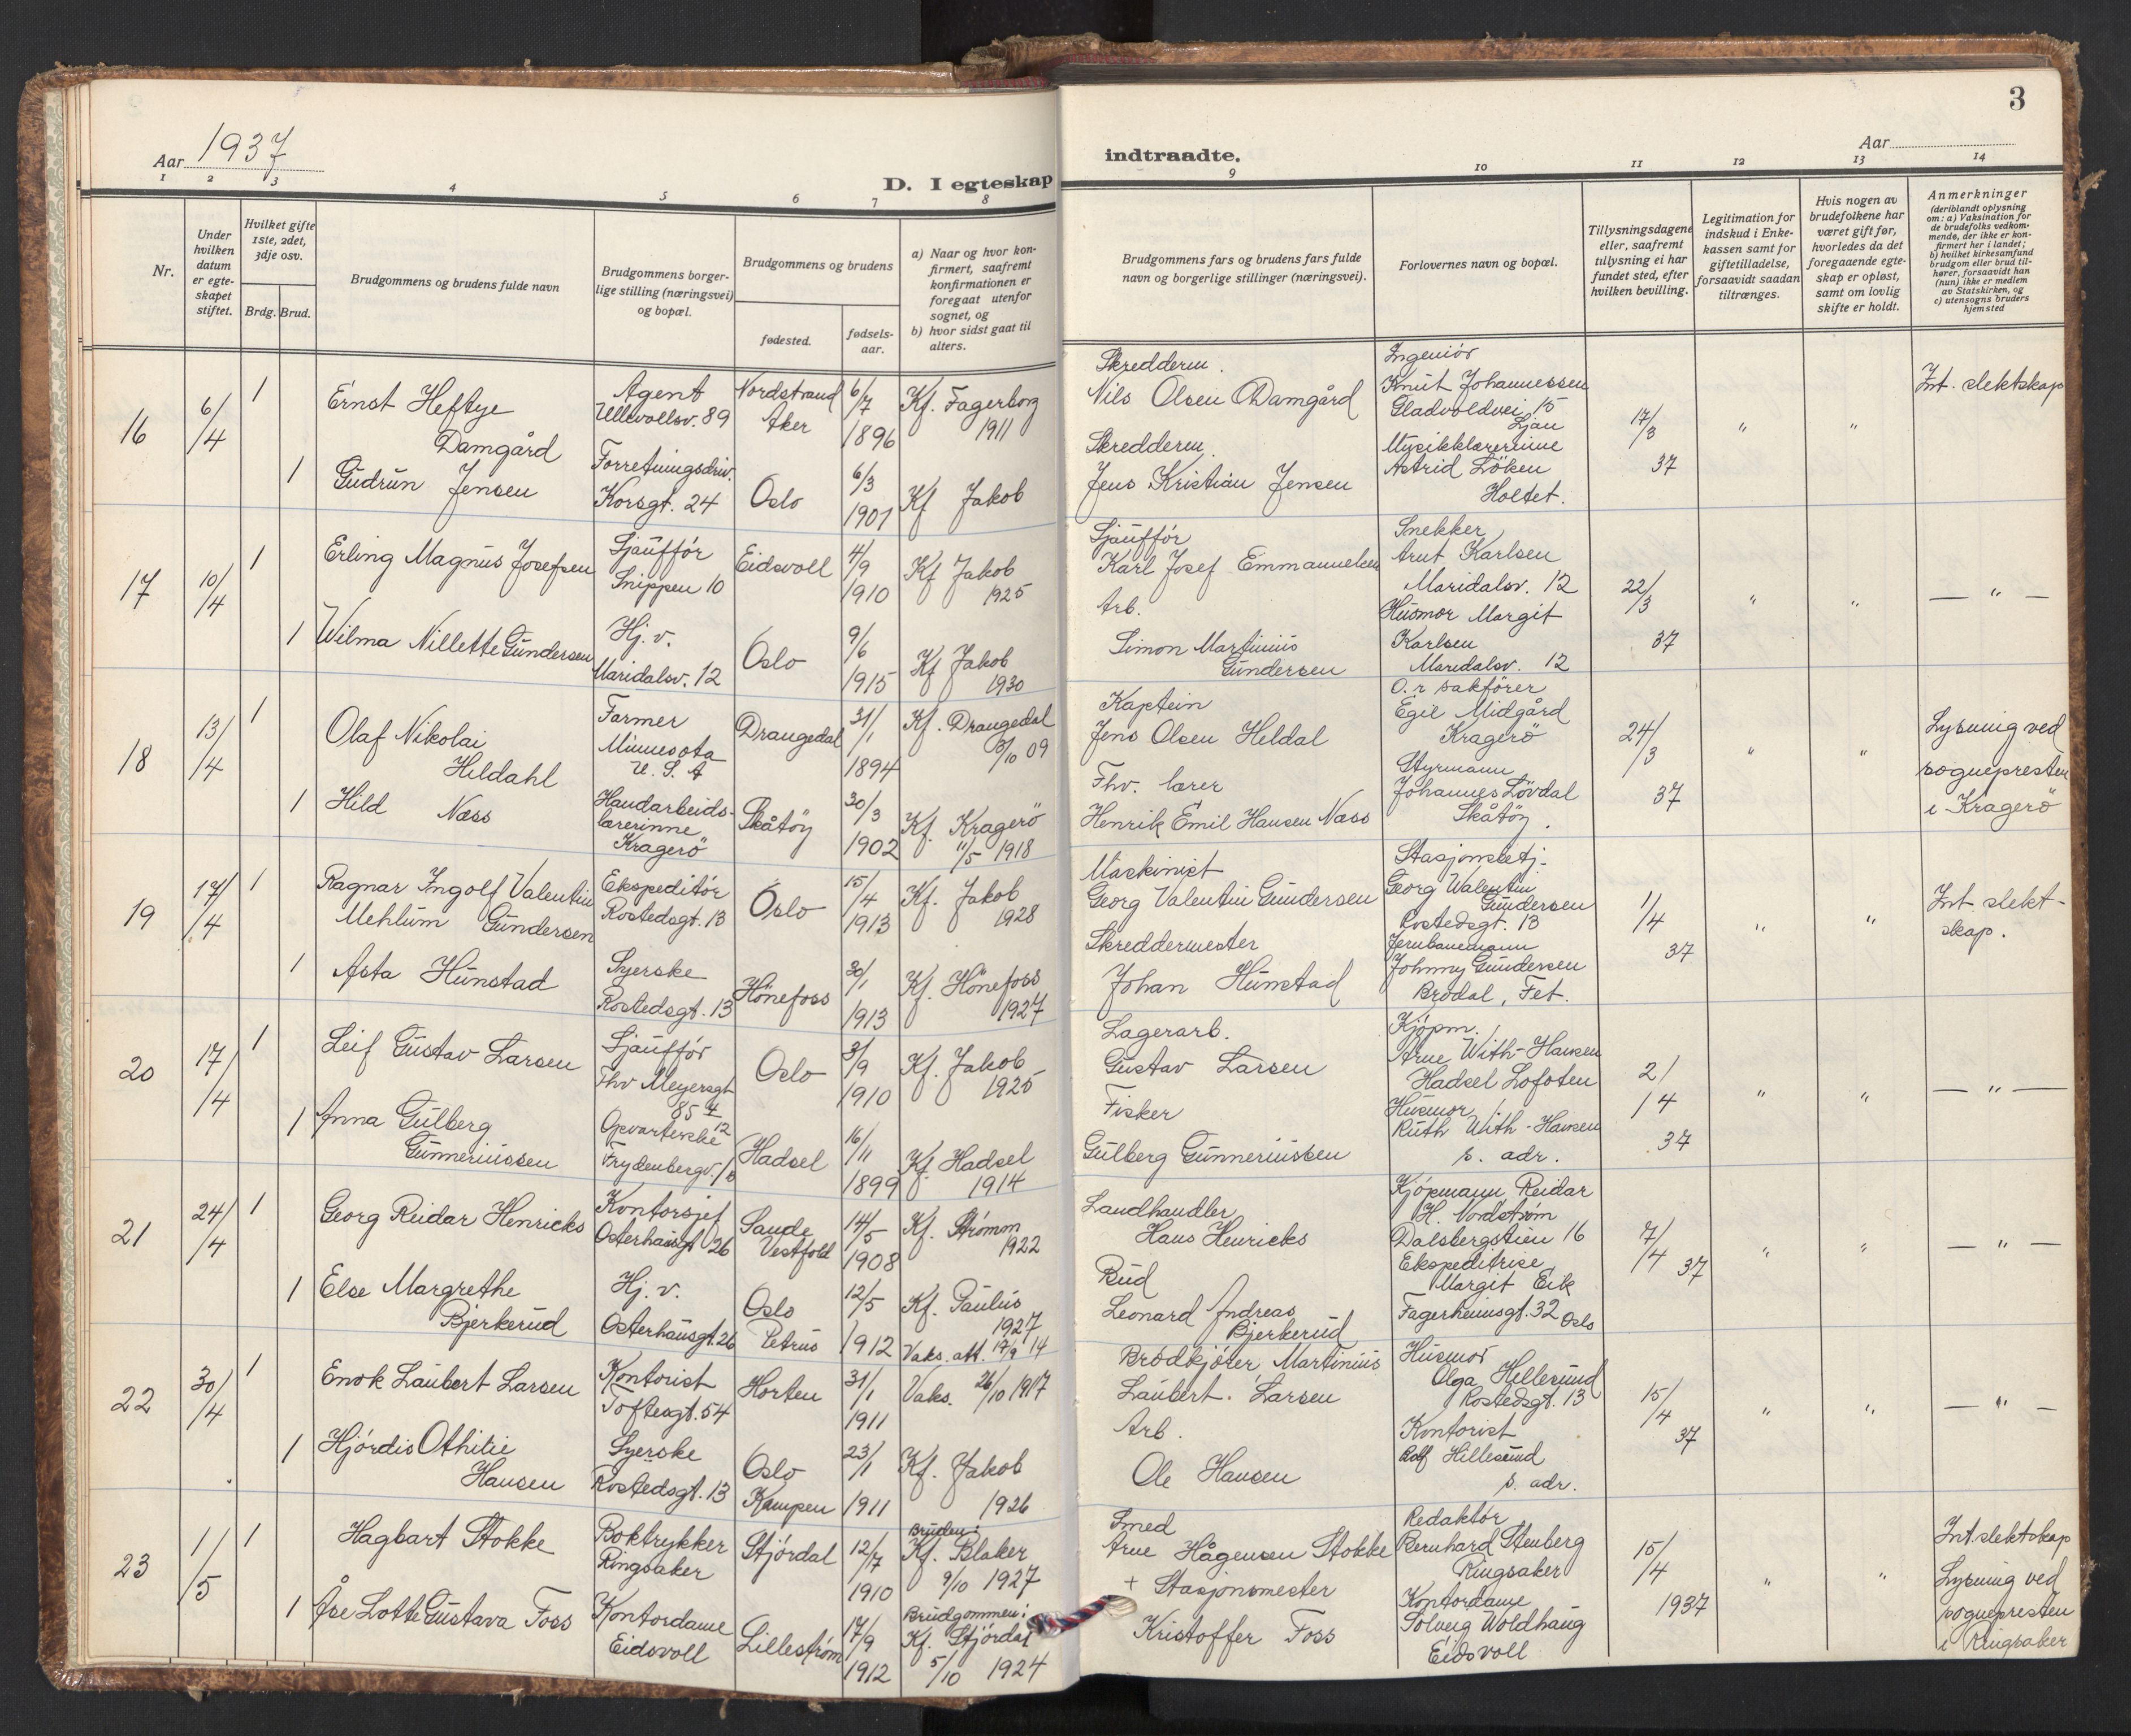 Aar 1937
D. I egteskap
1 2 3 4 5 6 7 8
Nr.
Under hvilken datum er egteskapet stiftet.
Hvilket gifte 1ste, 2det, 3dje osv.
Brdg. Brud.
Brudgommens og brudens fulde navn
Brudgommens borgerlige stilling (næringsvei) og bopæl.
Brudgommens og brudens
fødested.
fødselsaar.
a) Naar og hvor konfirmert, saafremt konfirmationen er foregaat utenfor sognet, og
b) hvor sidst gaat til alters.
16
6/4
1
Ernst Heftye
Damgård
Agent
Ullevollsv. 89
Nordstrand
Aker
6/7
1896
Kf. Fagerborg
1911
1
Gudrun Jensen
Forretningsdriv.
Korsgt. 24
Oslo
6/3
1901
Kf Jakob
17
10/4
1
Erling Magnus Josefsen
Sjåuffør
Snippen 10
Eidsvoll
4/9
1910
Kf Jakob
1925
1
Wilma Nillette Gundersen
Hj. v.
Maridalsv. 12
Oslo
9/6
1915
Kf Jakob
1930
18
13/4
1
Olaf Nikolai
Hildahl
Farmer
Minnesota
U. S. A
Drangedal
31/1
1894
Kf. Drangedal
3/10 09
1
Hild Næss
Handarbeids-
lærerinne
Kragerö
Skåtöy
30/3
1902
Kf. Kragerö
11/5 1918
19
17/4
1
Ragnar Ingolf Valentin
Mehlum Gundersen
Ekspeditör
Rostedsgt. 13
Oslo
15/4
1913
Kf. Jakob
1928
1
Asta Hunstad
Syerske
Rostedsgt. 13
Hönefoss
30/1
1913
Kf. Hönefoss
1927
20
17/4
1
Leif Gustav Larsen
Sjåufför
Thv Meyersgt
85 4
Oslo
3/9
1910
Kf. Jakob
1925
1
Anna Gulberg
Gunneriussen
Opvarterske
Frydenbergv.
Hadsel
16/11
1899
Kf Hadsel
1914
21
24/4
1
Georg Reidar Henricks
Kontorsjef
Osterhausgt 26
Sande
Vestfold
14/5
1908
Kf. Strömm
1922
1
Else Margrethe
Bjerkerud
Hj. v.
Osterhausgt. 26
Oslo
Petrus
12/5
1912
Kf. Paulus
1927
Vaks. att. 17/9 14
22
30/4
1
Enok Laubert Larsen
Kontorist
Toftesgt. 54
Horten
31/1
1911
Vaks. 26/10 1917
1
Hjördis Othilie
Hansen
Syerske
Rostedsgt. 13
Oslo
Kampen
23/1
1911
Kf. Jakob
1926
23
1/5
1
Hagbart Stokke
Boktrykker
Ringsaker
Stjördal
12/7
1910
Bruden:
Kf. Blaker
9/10 1927
1
Åse Lotte Gustava Foss
Kontordame
Eidsvoll
Lilleström
17/9
1912
Brudgommen:
Kf. Stjördal
5/10 1924
3
indtraadte.
Aar
9 10 11 12 13 14
Brudgommens fars og brudens fars fulde navn og borgerlige stillinger (næringsvei).
Forlovernes navn og bopæl.
Tillysningsdagene eller, saafremt tillysning ei har fundet sted, efter hvilken bevilling.
Legitimation for indskud i Enkekassen samt for giftetilladelse, forsaavidt saadan tiltrænges.
Hvis nogen av brudefolkene har været gift før, hvorledes da det foregaaende egteskap er opløst, samt om lovlig skifte er holdt.
Anmerkninger
(deriblandt oplysning om: a) Vaksination for de brudefolks vedkommende, der ikke er konfirmert her i landet; b) hvilket kirkesamfund brudgom eller brud tilhører, forsaavidt han (hun) ikke er medlem av Statskirken, og c) utensogns bruders hjemsted
Skredderm.
Nils Olsen Damgård
Skredderm.
Jens Kristian Jensen
Ingeniör
Knut Johannessen
Gladvoldvei 15
Ljan
Musikklærerinne
Astrid Löken
Holtet.
17/3
37
" "
Int. slektskap
Sjåufför
Karl Josef Emmanuelsen
Arb.
Simon Martinius
Gundersen
Snekker
Arnt Karlsen
Maridalsv. 12
Husmor Margit
Karlsen
Maridalsv. 12
22/3
37
" "
— " —
Kaptein
Jens Olsen Heldal
Fhv. lærer
Henrik Emil Hansen Næss
O.r sakförer
Egil Midgård
Kragerö
Styrmann
Johannes Lövdal
Skåtöy.
24/3
37
" "
Lysning ved
sognepresten
i Kragerö
Maskinist
Georg Valentin Gundersen
Skreddermester
Johan Hunstad
Stasjonsbetj.
Georg Walentin
Gundersen
Rostedsgt. 13
Jernbanemann
Johnny Gundersen
Brödal, Fet.
1/4
37
" "
Int. slekt-
skap.
Lagerarb.
Gustav Larsen
Fisker
Gulberg Gunneriussen
Kjöpm.
Arne With-Hansen
Hadsel Lofoten
Husmor
Ruth With-Hansen
s. adr.
2/
/4
37
" "
— " —
Landhandler
Hans Henricks
Bud
Leonard Andreas
Bjerkerud
Kjöpmann Reidar
H. Nordström
Dalsbergstien 16
Ekspeditrise
Margit Eik
Fagerheimsgt. 32 Oslo
7/4 37
" "
— " —
Brödkjörer Martinius
Laubert. Larsen
Arb.
Ole Hansen
Husmor
Olga Hillesund
Rostedsgt. 13
Kontorist
Rolf Hillesund
s. adr.
15/4
37
" "
— " —
Smed
Arne Hågensen Stokke
+ Stasjonsmester
Kristoffer Foss
Redaktör
Bernhard Stenberg
Ringsaker
Kontordame
Solveig Woldhaug
Eidsvoll
15/4
1937
" "
Int. slektskap
Lysning ved
sognepresten
i Ringsaker